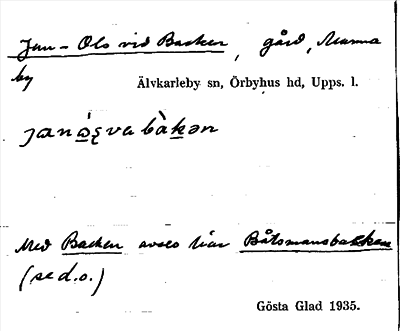 Jan-Ols vid Backen, gård, Marma
by
Älvkarleby sn, Örbyhus hd, Upps. l.
Med Backen avses här Båtsmansbacken
(se d.o.)
Gösta Glad 1935.